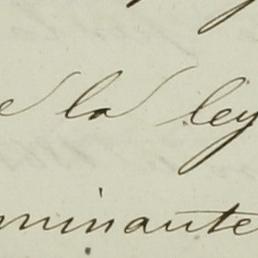 e la ley
minante